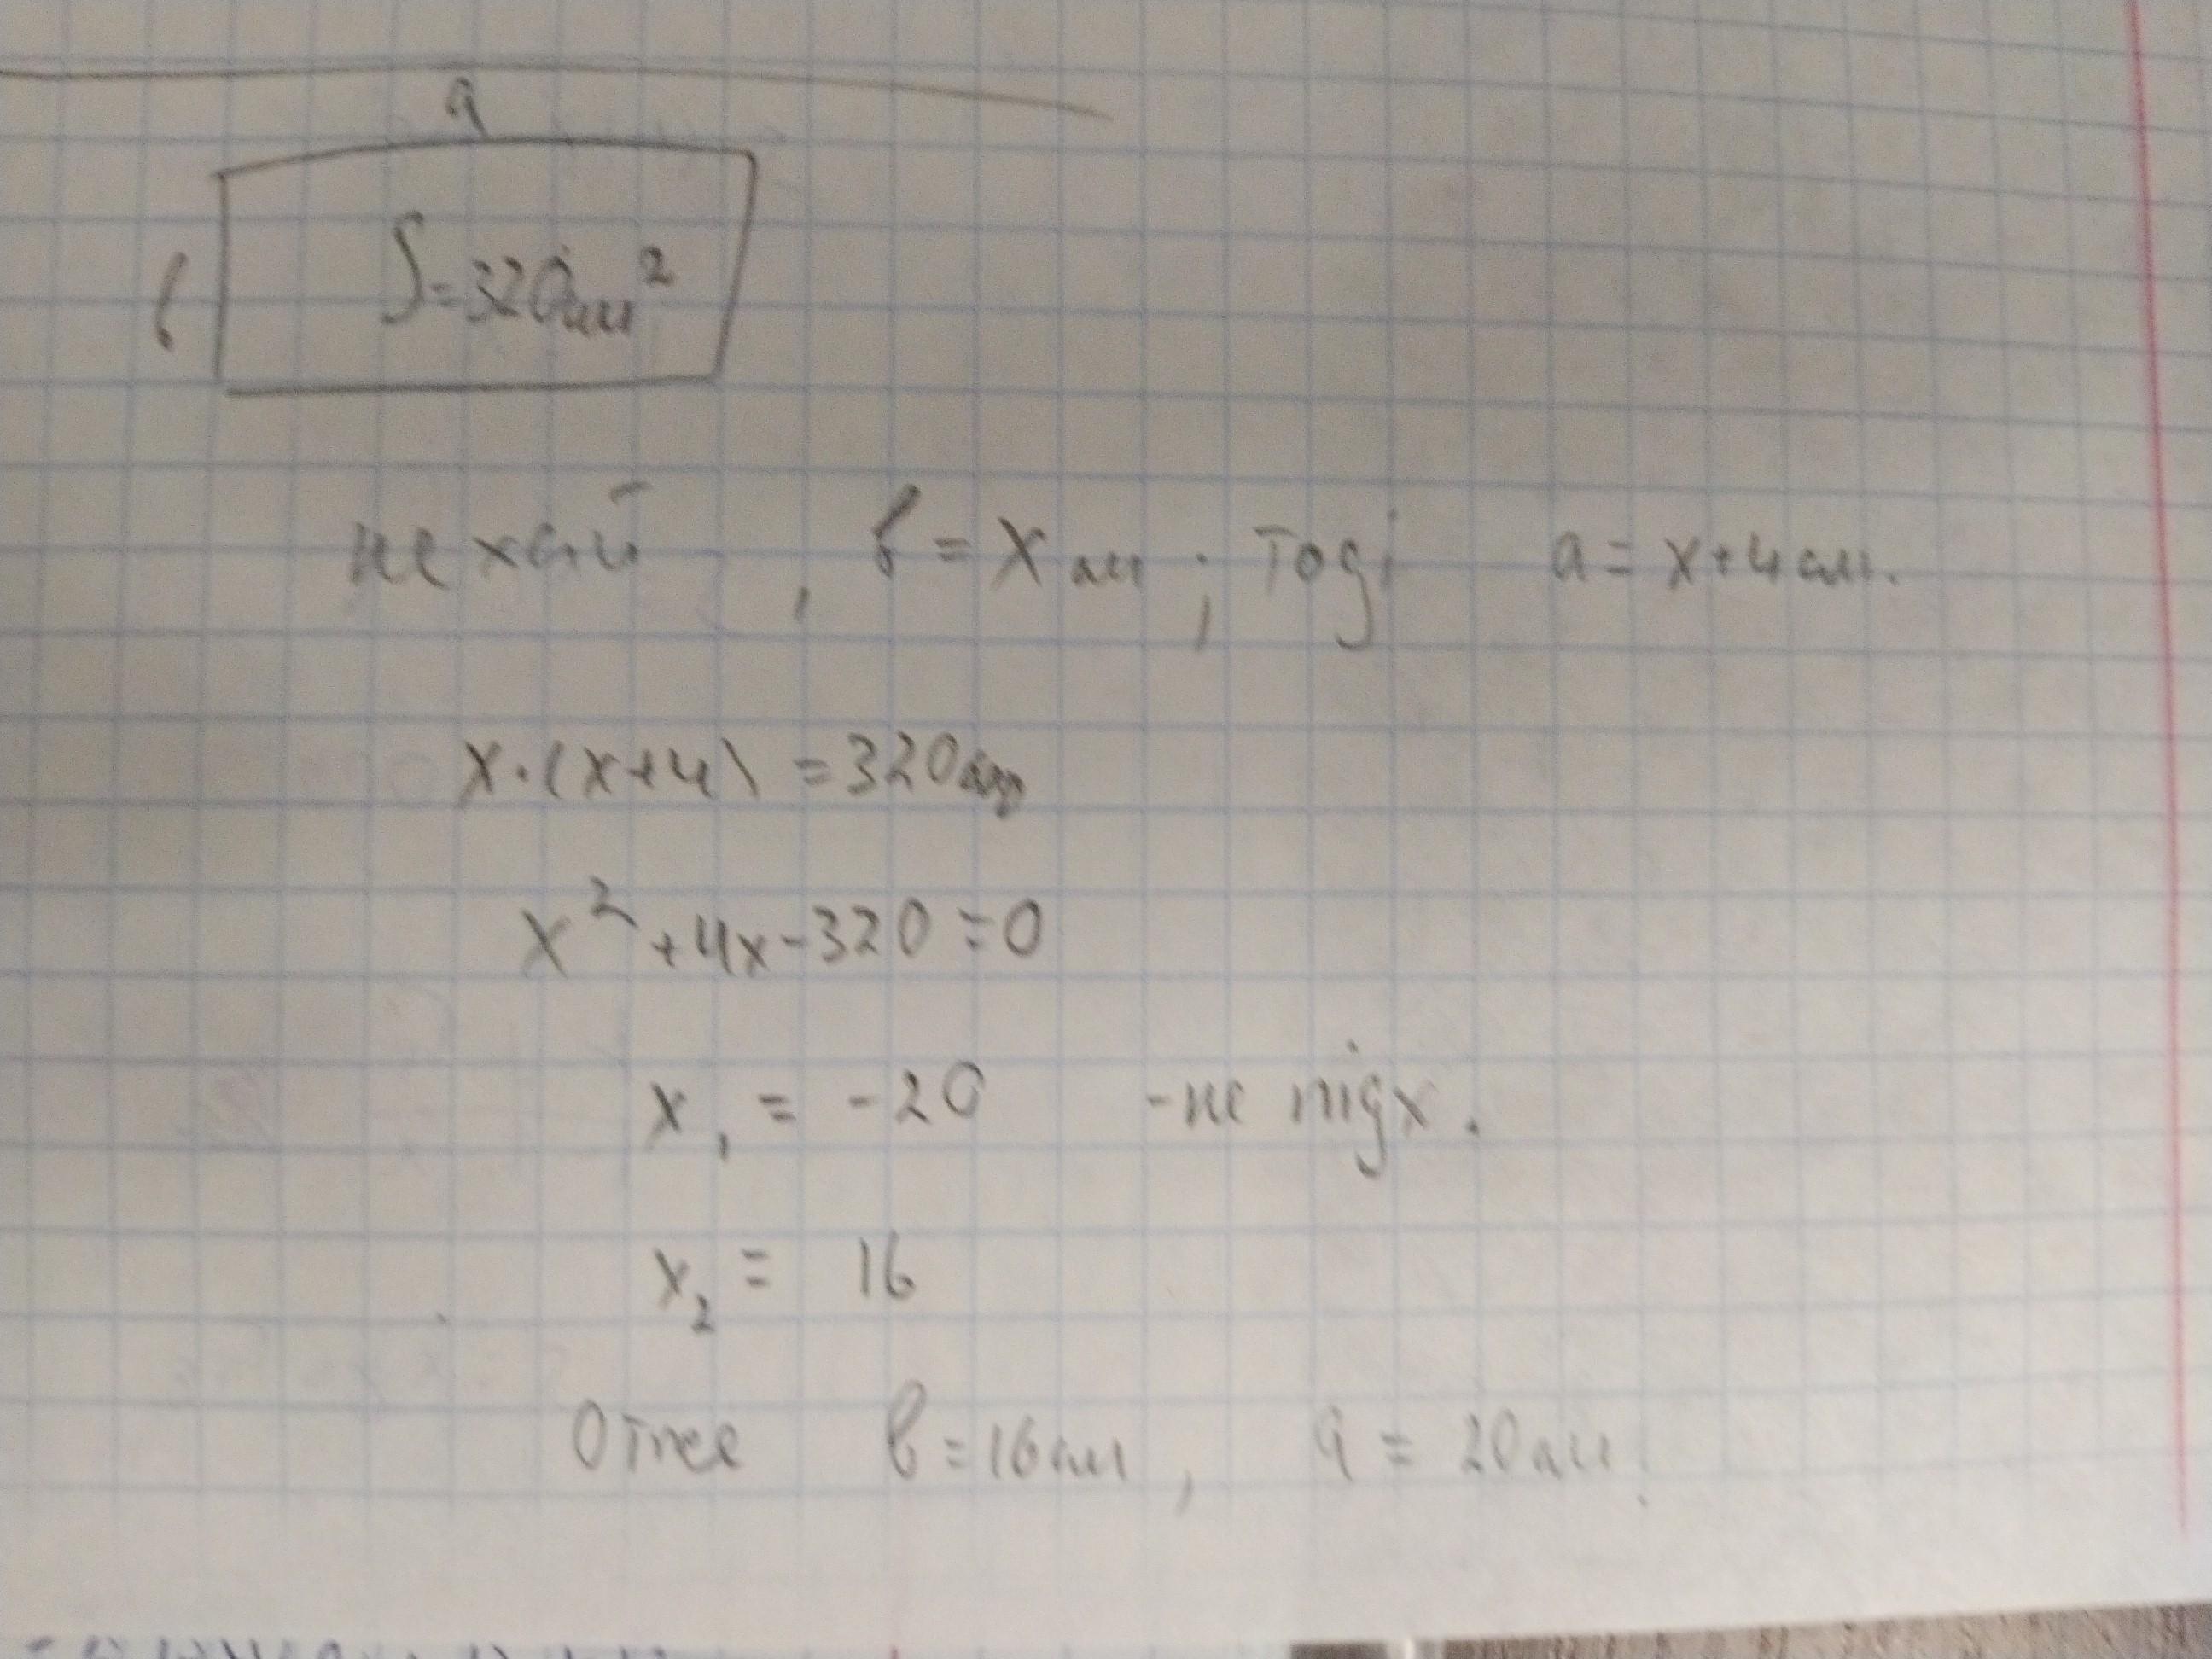 a
b S=320см²
нехай , b = x см ; тоді a = x+4 см.
x·(x+4) = 320
x²+4x-320=0
x₁ = -20 - не підх.
x₂ = 16
Отже b=16см, a = 20см.